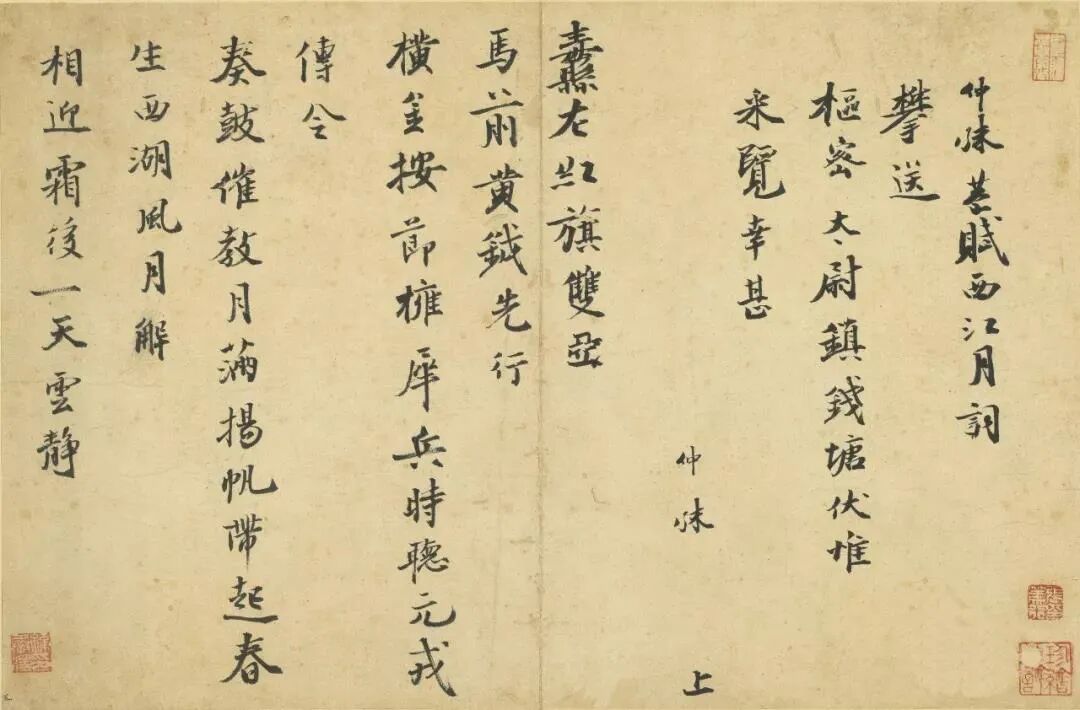 仲殊甚賦西江月詞
攀送
樞密太尉鎮錢塘伏惟
采覽幸甚
仲殊
上
纛左紅旗雙亞
馬前黃鉞先行
橫金按節擁犀兵時聽元戎
傳令
奏鼓催教月滿揚帆帶起春
生西湖風月解
相迎霜後一天雲靜